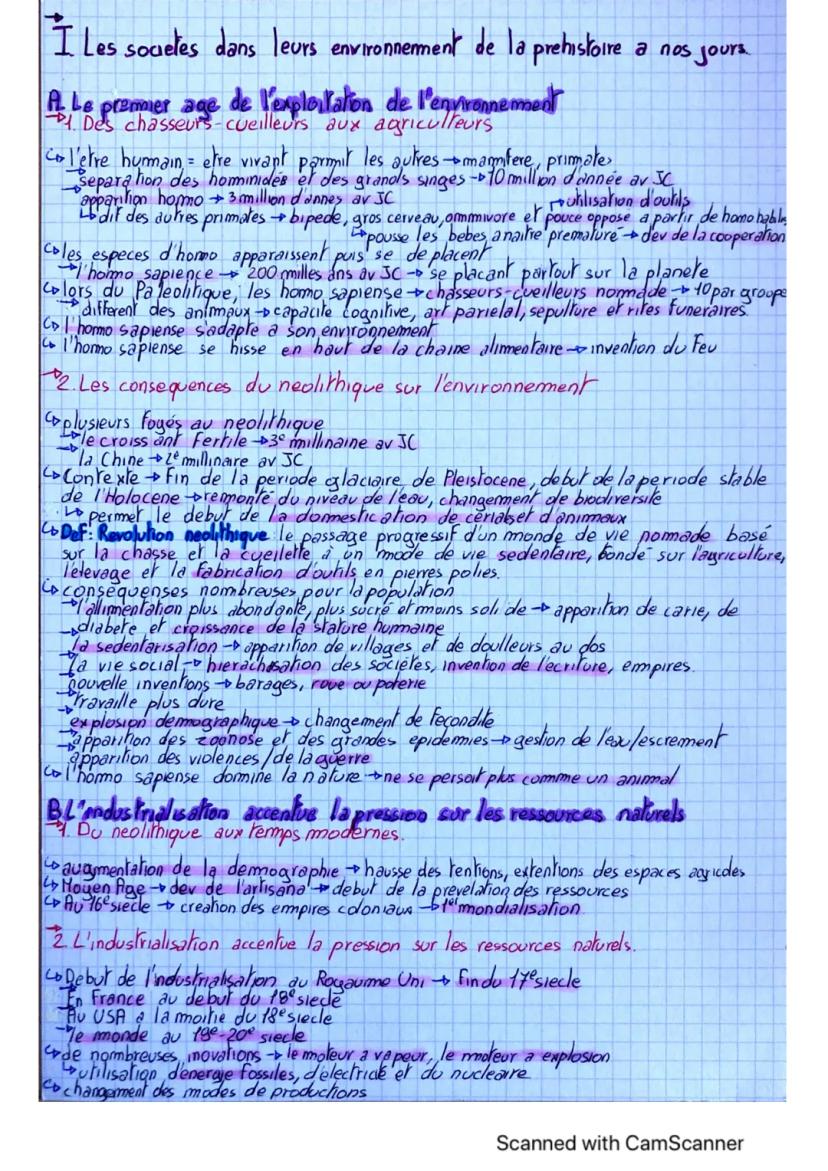 I Les societes dans leurs environnement de la prehistoire a nos jours.
A. Le premier age de l'exploitation de l'environnement
→1. Des chasseurs-cueilleurs aux agriculteurs
↳ l'etre humain = etre vivant parmit les autres → mammifere, primates
→ separation des hominidés et des grands singes → 10 million d'année av JC
→ apparition homo → 3 million d'annes av JC → utilisation d'outils
↳ dif des autres primates → bipede, gros cerveau, ommnivore et pouce oppose a partir de homo habilis
↳ pousse les bebes a naitre premature → dev de la cooperation
↳ les especes d'homo apparaissent puis se de placent
→ l'homo sapience → 200 milles ans av JC → se placant partout sur la planete
↳ lors du Paleolitique, les homo sapiense → chasseurs-cueilleurs normade → 10 par groupe
→ different des animaux → capacite cognitive, art parietal, sepulture et rites funeraires.
↳ l'homo sapiense s'adapte a son environnement
↳ l'homo sapiense se hisse en haut de la chaine alimentaire → invention du feu
→2. Les consequences du neolithique sur l'environnement
↳ plusieurs foyés au neolithique
→ le croissant Fertile → 3e millinaine av JC
→ la Chine → 2e millinaire av JC
↳ Contexte → fin de la periode glaciaire de Pleistocene, debut de la periode stable
de l'Holocene → remonté du niveau de l'eau, changement de biodiversite
↳ permet le debut de la domestication de cerialset d'animaux
↳ Def: Revolution neolithique : le passage progressif d'un monde de vie nomade basé
sur la chasse et la cueillette à un mode de vie sedentaire, fondé sur l'agriculture,
l'elevage et la fabrication d'outils en pierres polies.
↳ consequenses nombreuses pour la population
→ l'allimentation plus abondante, plus sucré et moins soli de → apparition de carie, de
diabete et croissance de la stature humaine
→ la sedentarisation → apparition de villages et de doulleurs au dos
→ la vie social → hierachisation des sociétes, invention de l'ecriture, empires.
→ nouvelle inventions → barages, roue ou poterie
→ travaille plus dure
→ explosion demographique → changement de fecondite
→ apparition des zoonose et des grandes epidemies → gestion de l'eau/escrement
→ apparition des violences/de la guerre
↳ l'homo sapiense domine la nature → ne se persoit plus comme un animal
B L'industrialisation accentue la pression sur les ressources naturels
→1. Du neolithique aux temps modernes.
↳ augmentation de la demographie → hausse des tentions, extentions des espaces agricoles
↳ Moyen Age → dev de l'artisana → debut de la prevelation des ressources
↳ Au 16e siecle → creation des empires coloniaux → 1er mondialisation
→2. L'industrialisation accentue la pression sur les ressources naturels.
↳ Debut de l'industrialisation au Royaume Uni → fin du 17e siecle
→ En France au debut du 18e siecle
→ Au USA a la moitie du 18e siecle
→ le monde au 19e-20e siecle
↳ de nombreuses inovations → le moteur a vapeur, le moteur a explosion
↳ utilisation d'energie fossiles, d'electricité et du nucleaire
↳ changement des modes de productions
Scanned with CamScanner